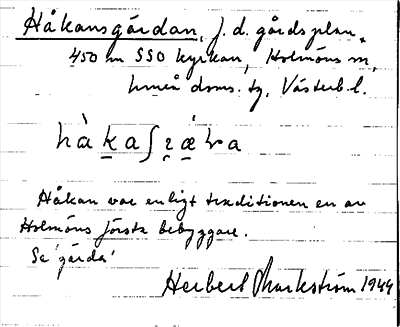 Håkansgårdan, f. d. gårdsplan,
450 m SSO kyrkan, Holmöns sn,
Umeå doms. tg, Västerb. l.
Håkan var enligt traditionen en av
Holmöns första bebyggare.
Se 'gårda'
Herbert Markström 1944